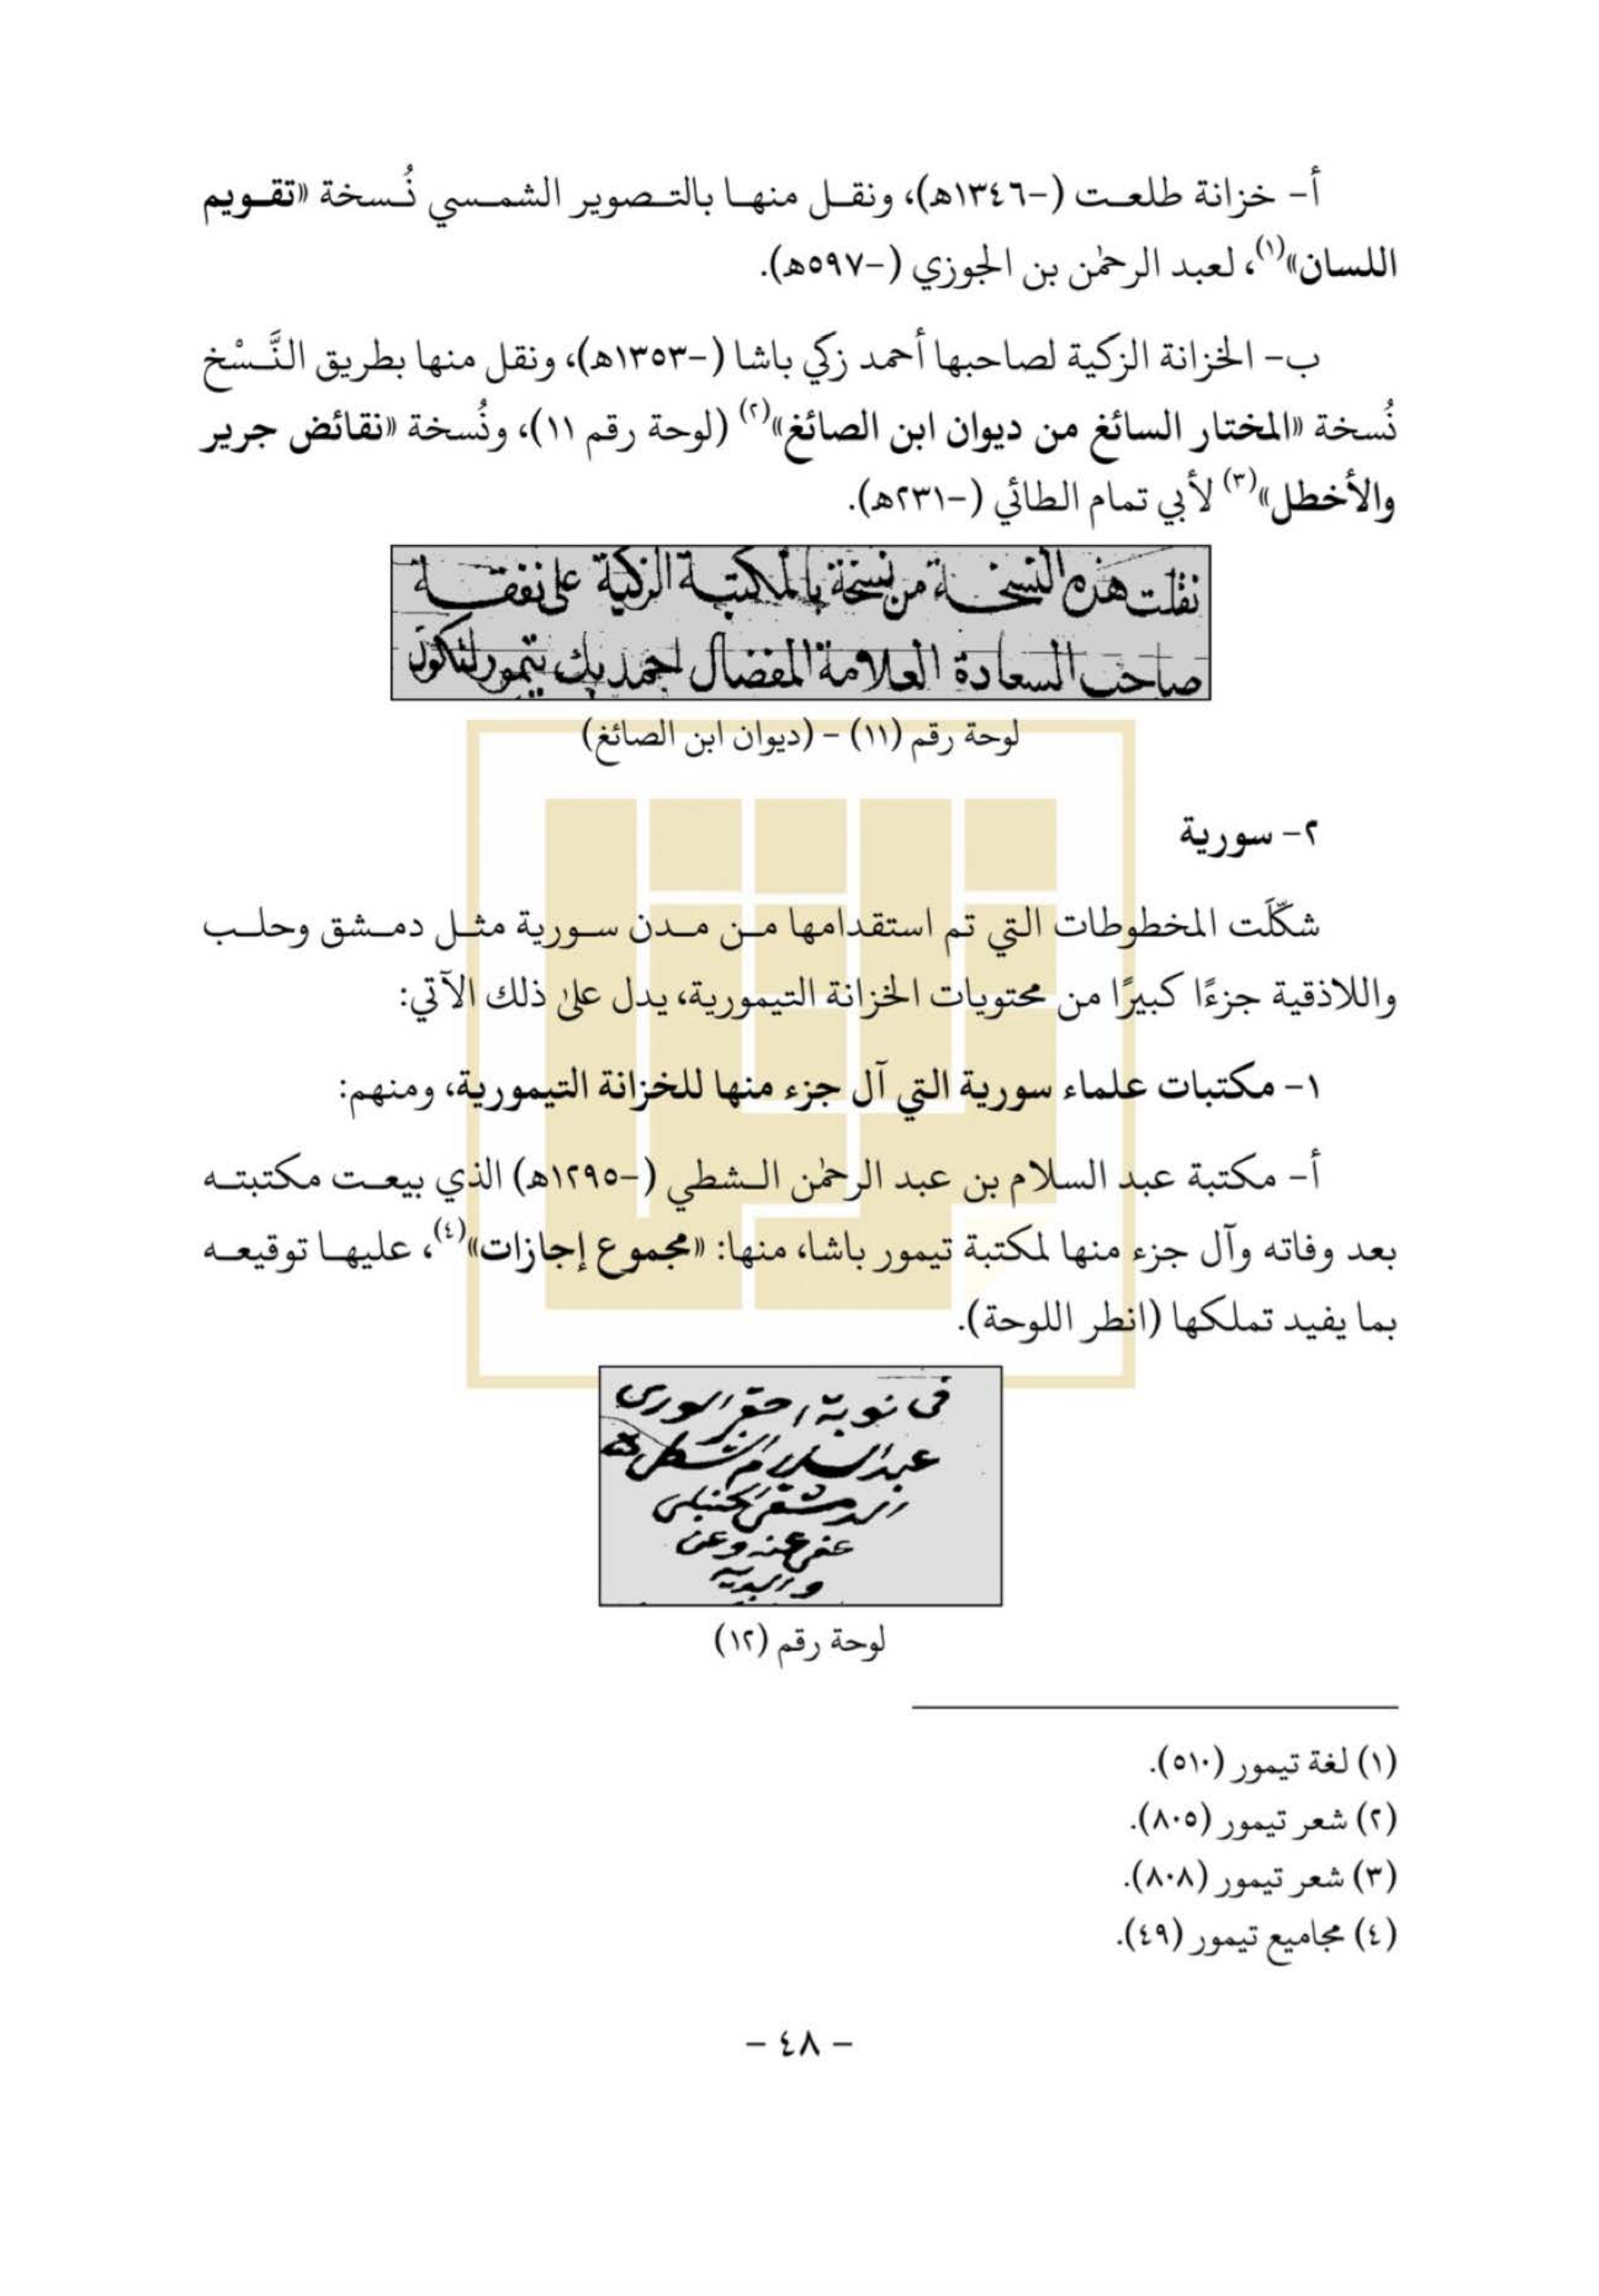 أ- خزانة طلعت (-١٣٤٦ه)، ونقل منها بالتصوير الشمسي نُسخة «تقويم
اللسان»(١)، لعبد الرحمٰن بن الجوزي (-٥٩٧ه).
ب- الخزانة الزكية لصاحبها أحمد زكي باشا (-١٣٥٣ه)، ونقل منها بطريق النَّسْخ
نُسخة «المختار السائغ من ديوان ابن الصائغ»(٢) (لوحة رقم ١١)، ونُسخة «نقائض جرير
والأخطل»(٣) لأبي تمام الطائي (-٢٣١ه).
نقلت هذه النسخة من نسخة بالمكتبة الزكية على نفقة
صاحب السعادة العلامة المفضال احمد بك تيمور لتكون
لوحة رقم (١١) - (ديوان ابن الصائغ)
٢- سورية
شكّلَت المخطوطات التي تم استقدامها من مدن سورية مثل دمشق وحلب
واللاذقية جزءًا كبيرًا من محتويات الخزانة التيمورية، يدل علىٰ ذلك الآتي:
١- مكتبات علماء سورية التي آل جزء منها للخزانة التيمورية، ومنهم:
أ- مكتبة عبد السلام بن عبد الرحمٰن الشطي (-١٢٩٥ه) الذي بيعت مكتبته
بعد وفاته وآل جزء منها لمكتبة تيمور باشا، منها: «مجموع إجازات»(٤)، عليها توقيعه
بما يفيد تملكها (انظر اللوحة).
في نوبة احقر الورى
عبد السلام الشطي
الدمشقي الحنبلي
عفي عنه وعن
والديه
لوحة رقم (١٢)
(١) لغة تيمور (٥١٠).
(٢) شعر تيمور (٨٠٥).
(٣) شعر تيمور (٨٠٨).
(٤) مجاميع تيمور (٤٩).
- ٤٨ -